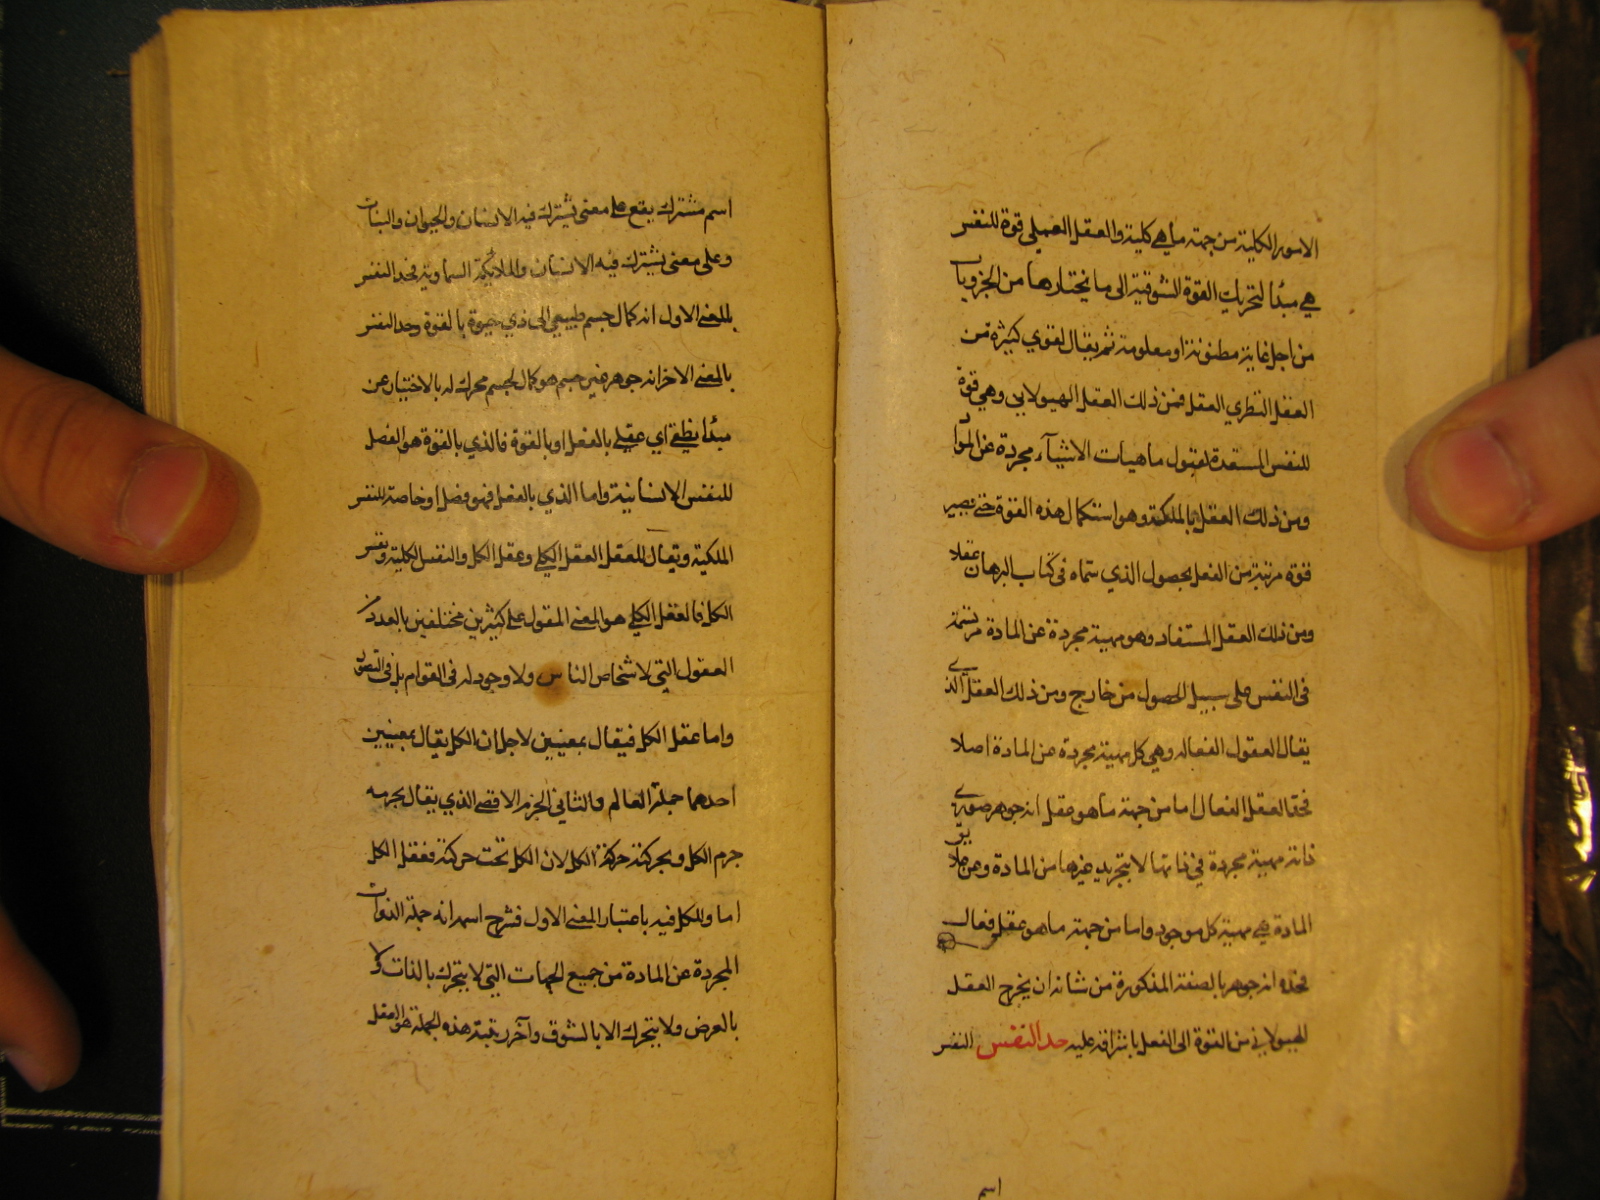 الامور الكلية من جهة ما هي كلية والعقل العملي قوة للنفس
هي مبدأ لتحريك القوة الشوقية الى ما يختارها من الجزويات
من اجل غاية مظنونة او معلومة ثم يقال لقوي كثيرة من
العقل النظري العقل فمن ذلك العقل الهيولاني وهي قوة
للنفس المستعدة لقبول ماهيات الاشيآء مجردة عن المواد
ومن ذلك العقل بالملكة وهو استكمال هذه القوة حتى تصير
قوة مرتبة من الفعل بحصول الذي سماه في كتاب البرهان عقلا
ومن ذلك العقل المستفاد وهو مهية مجردة عن المادة مرتسمة
في النفس على سبيل الحصول من خارج ومن ذلك العقل الذي
يقال العقول الفعاله وهي كل مهية مجردة عن المادة اصلا
فحد العقل الفعال اما من جهة ما هو عقل انه جوهر صوري
ذاته مهية مجردة في ذاتها لا بتجريد غيرها من المادة وعن علايق
المادة هي مهية كل موجود واما من جهة ما هو عقل فعال
فحده انه جوهر بالصفة المذكورة من شانه ان يخرج العقل
الهيولاني من القوة الى الفعل باشراقه عليه حد النفس النفس
اسم
اسم مشترك يقع على معنى يشترك فيه الانسان والحيوان والنبات
وعلى معنى يشترك فيه الانسان والملايكة السماوية فحد النفس
بالمعنى الاول انه كمال جسم طبيعي الى ذي حيوة بالقوة وحد النفس
بالمعنى الاخر انه جوهر غير جسم هو كمال لجسم محرك له بالاختيار عن
مبدأ نطقي اي عقلي بالفعل او بالقوة فالذي بالقوة هو الفصل
للنفس الانسانية واما الذي بالفعل فهو فصل او خاصة للنفس
الملكية ويقال للعقل العقل الكلي وعقل الكل والنفس الكلية ونفس
الكل فالعقل الكلي هو المعنى المقول على كثيرين مختلفين بالعدد من
العقول التي لاشخاص الناس ولا وجود له في القوام بل في التصور
واما عقل الكل فيقال بمعنيين لاجل ان الكل يقال بمعنيين
احدهما جملة العالم والثاني الجرم الاقصى الذي يقال لجرمه
جرم الكل وبحركته حركة الكل لان الكل تحت حركته فعقل الكل
اما والكل فيه باعتبار المعنى الاول فشرح اسمه انه جملة الذوات
المجردة عن المادة من جميع الجهات التي لا يتحرك بالذات ولا
بالعرض ولا يتحرك الا بالشوق وآخر رتبة هذه الجملة هو العقل